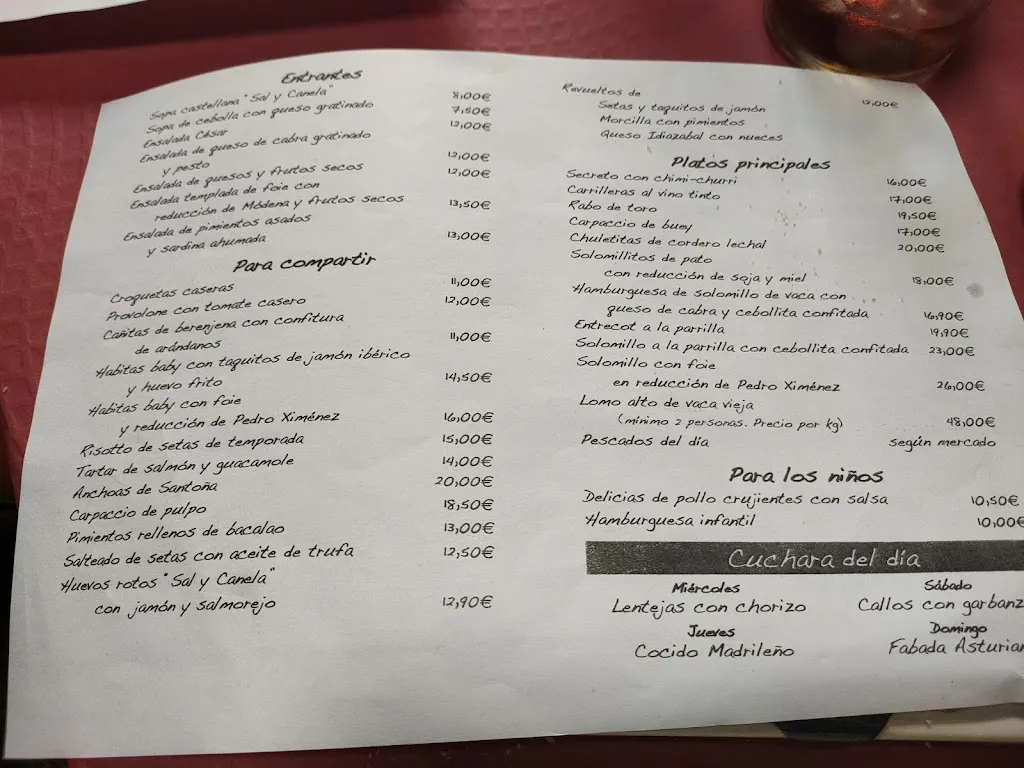 Entrantes
Sopa castellana "Sal y Canela" 8,00€
Sopa de cebolla con queso gratinado 7,50€
Ensalada César 12,00€
Ensalada de queso de cabra gratinado
y pesto 12,00€
Ensalada de quesos y frutos secos 12,00€
Ensalada templada de foie con
reducción de Módena y frutos secos 13,50€
Ensalada de pimientos asados
y sardina ahumada 13,00€
Para compartir
Croquetas caseras 11,00€
Provolone con tomate casero 12,00€
Cañitas de berenjena con confitura
de arándanos 11,00€
Habitas baby con taquitos de jamón ibérico
y huevo frito 14,50€
Habitas baby con foie
y reducción de Pedro Ximénez 16,00€
Risotto de setas de temporada 15,00€
Tartar de salmón y guacamole 14,00€
Anchoas de Santoña 20,00€
Carpaccio de pulpo 18,50€
Pimientos rellenos de bacalao 13,00€
Salteado de setas con aceite de trufa 12,50€
Huevos rotos "Sal y Canela"
con jamón y salmorejo 12,90€
Revueltos de 12,00€
Setas y taquitos de jamón
Morcilla con pimientos
Queso Idiazabal con nueces
Platos principales
Secreto con chimi-churri 16,00€
Carrilleras al vino tinto 17,00€
Rabo de toro 19,50€
Carpaccio de buey 17,00€
Chuletitas de cordero lechal 20,00€
Solomillitos de pato
con reducción de soja y miel 18,00€
Hamburguesa de solomillo de vaca con
queso de cabra y cebollita confitada 16,90€
Entrecot a la parrilla 19,90€
Solomillo a la parrilla con cebollita confitada 23,00€
Solomillo con foie
en reducción de Pedro Ximénez 26,00€
Lomo alto de vaca vieja
(mínimo 2 personas. Precio por kg) 48,00€
Pescados del día según mercado
Para los niños
Delicias de pollo crujientes con salsa 10,50€
Hamburguesa infantil 10,00€
Cuchara del día
Miércoles
Lentejas con chorizo
Jueves
Cocido Madrileño
Sábado
Callos con garbanz
Domingo
Fabada Asturian